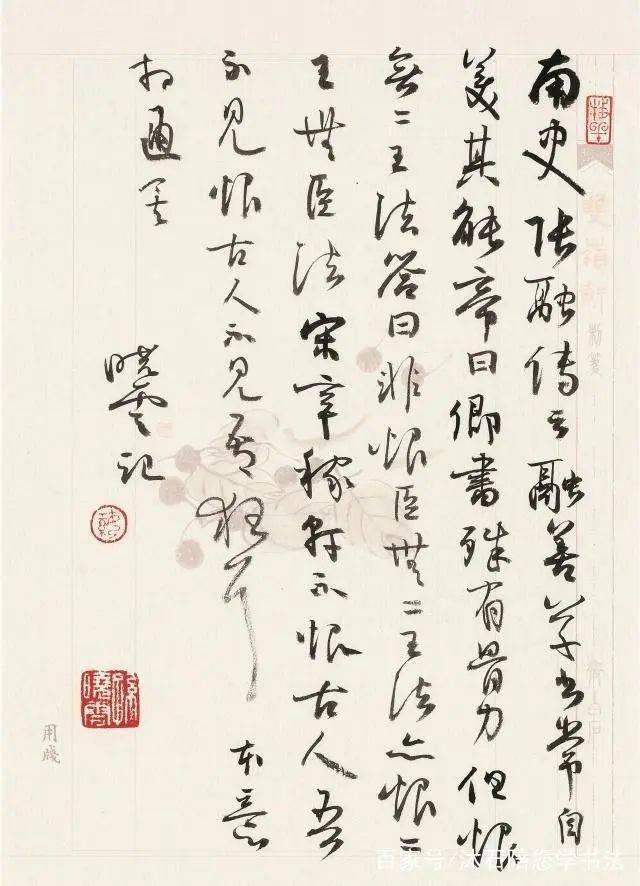 南史張融傳云融善草書常自
美其能帝曰卿書殊有骨力但恨
無二王法答曰非恨臣無二王法亦恨二
王無臣法宋辛稼軒不恨古人吾
不見恨古人不見吾狂耳 本意
相通矣
曉雲記
用牋
百家号/沐石陪您学书法